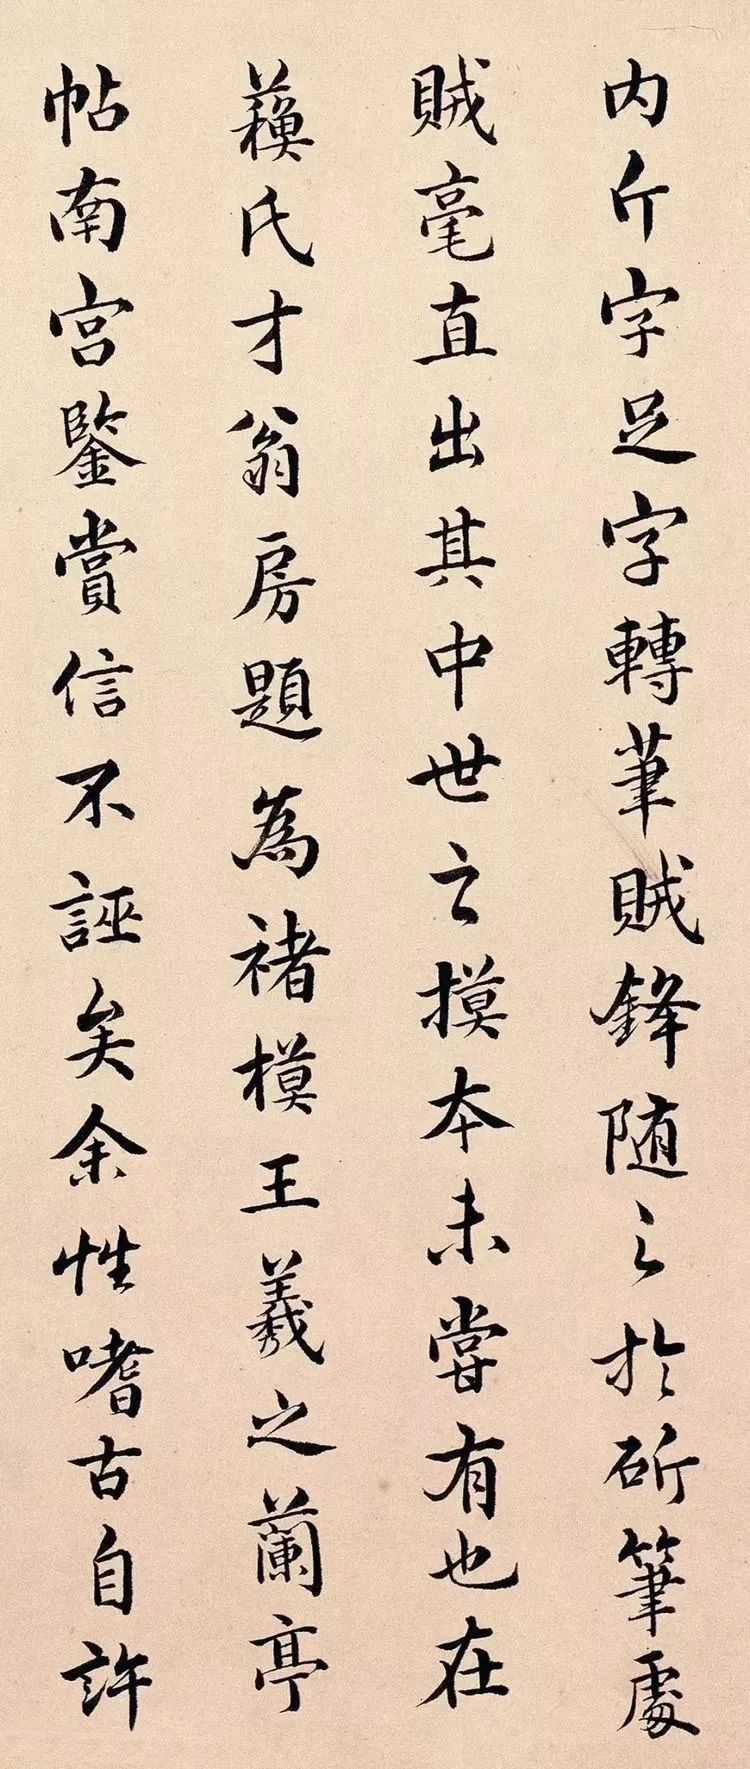 内斤字足字轉筆賊鋒随之於斫筆處
賊毫直出其中世之摸本未嘗有也在
蘓氏才翁房題為褚模王羲之蘭亭
帖南宫鑒賞信不誣矣余性嗜古自許